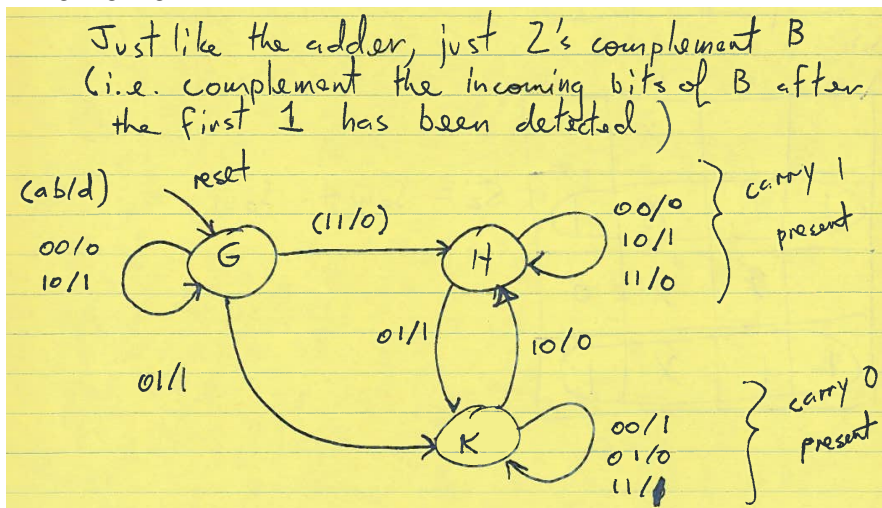 Just like the adder, just 2's complement B
(i.e. complement the incoming bits of B after
the first 1 has been detected)
(ab/d)
reset
00/0
10/1
G
(11/0)
H
00/0
10/1
11/0
carry 1
present
01/1
10/0
01/1
K
00/1
01/0
carry 0
present